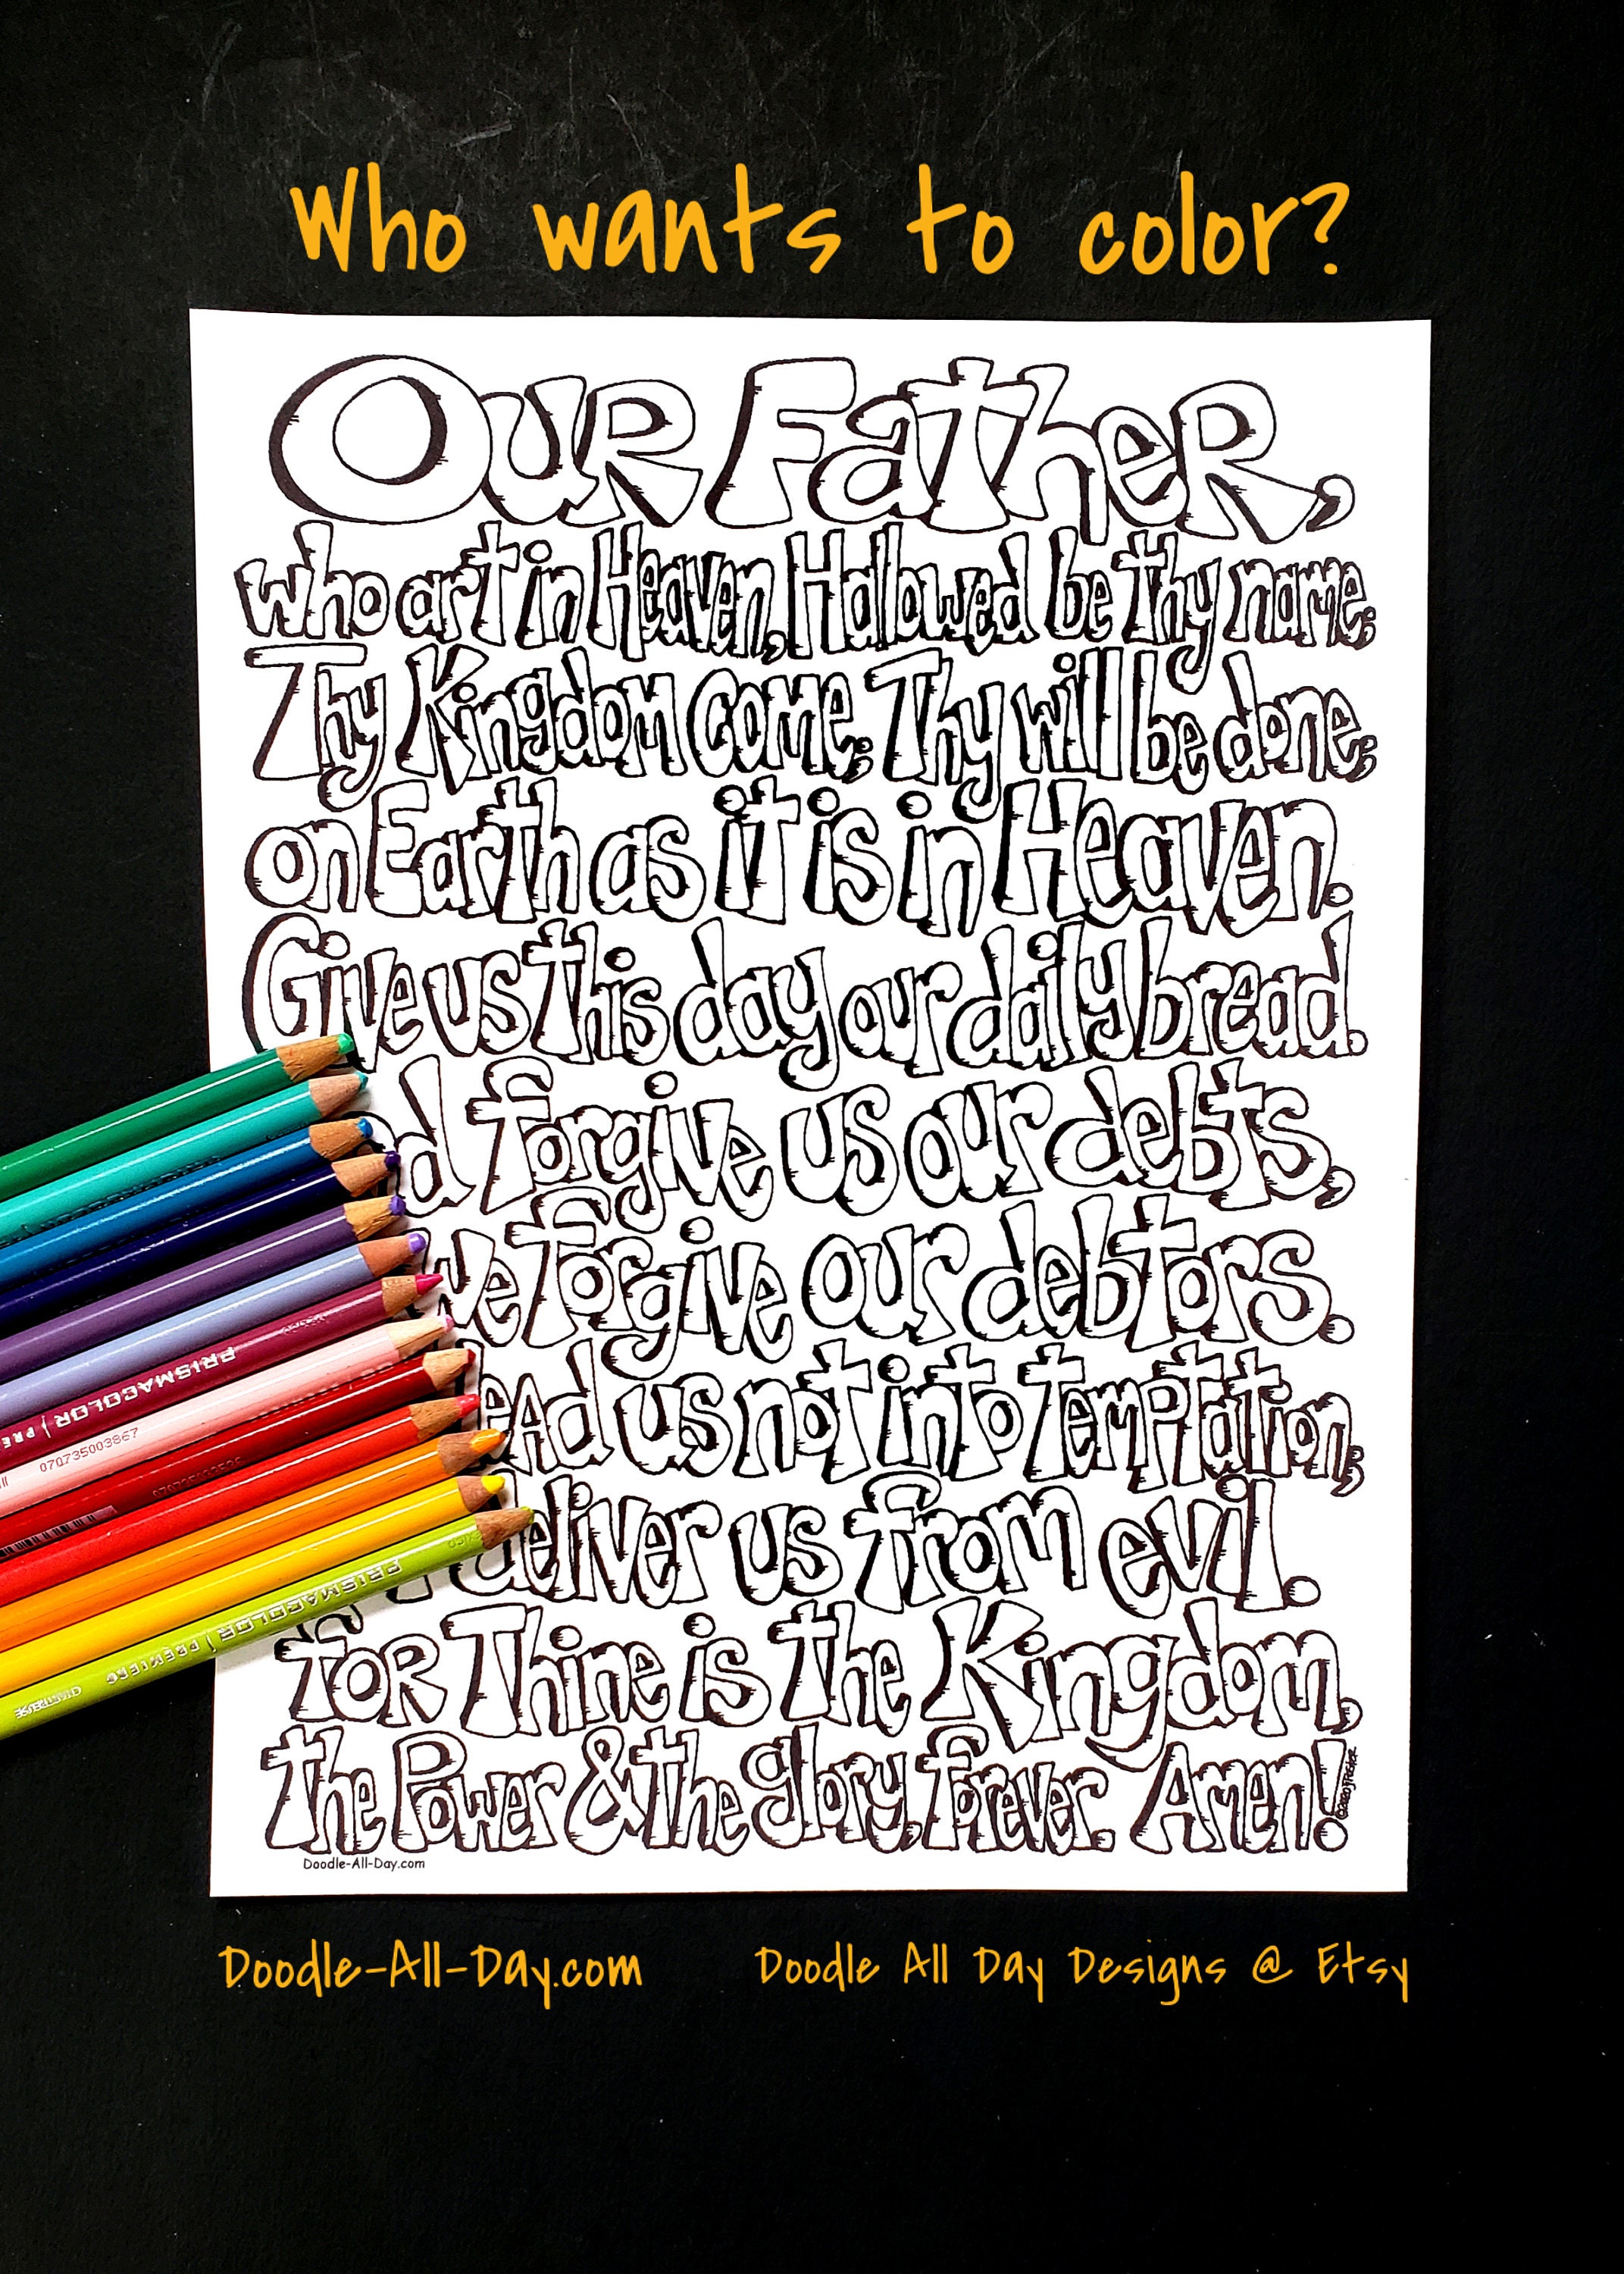 Who wants to color?
Our Father,
who art in Heaven, Hallowed be thy name;
Thy Kingdom come; Thy will be done;
on Earth as it is in Heaven.
Give us this day our daily bread.
d forgive us our debts,
we forgive our debtors.
ead us not into temptation;
deliver us from evil.
for Thine is the Kingdom,
the Power & the glory, forever. Amen!
©2020 JFoster
Doodle-All-Day.com
PRISMACOLOR | PRE
070735003867
PRISMACOLOR | PREMIER
CHARTREUSE
MEXICO
Doodle-All-Day.com
Doodle All Day Designs @ Etsy